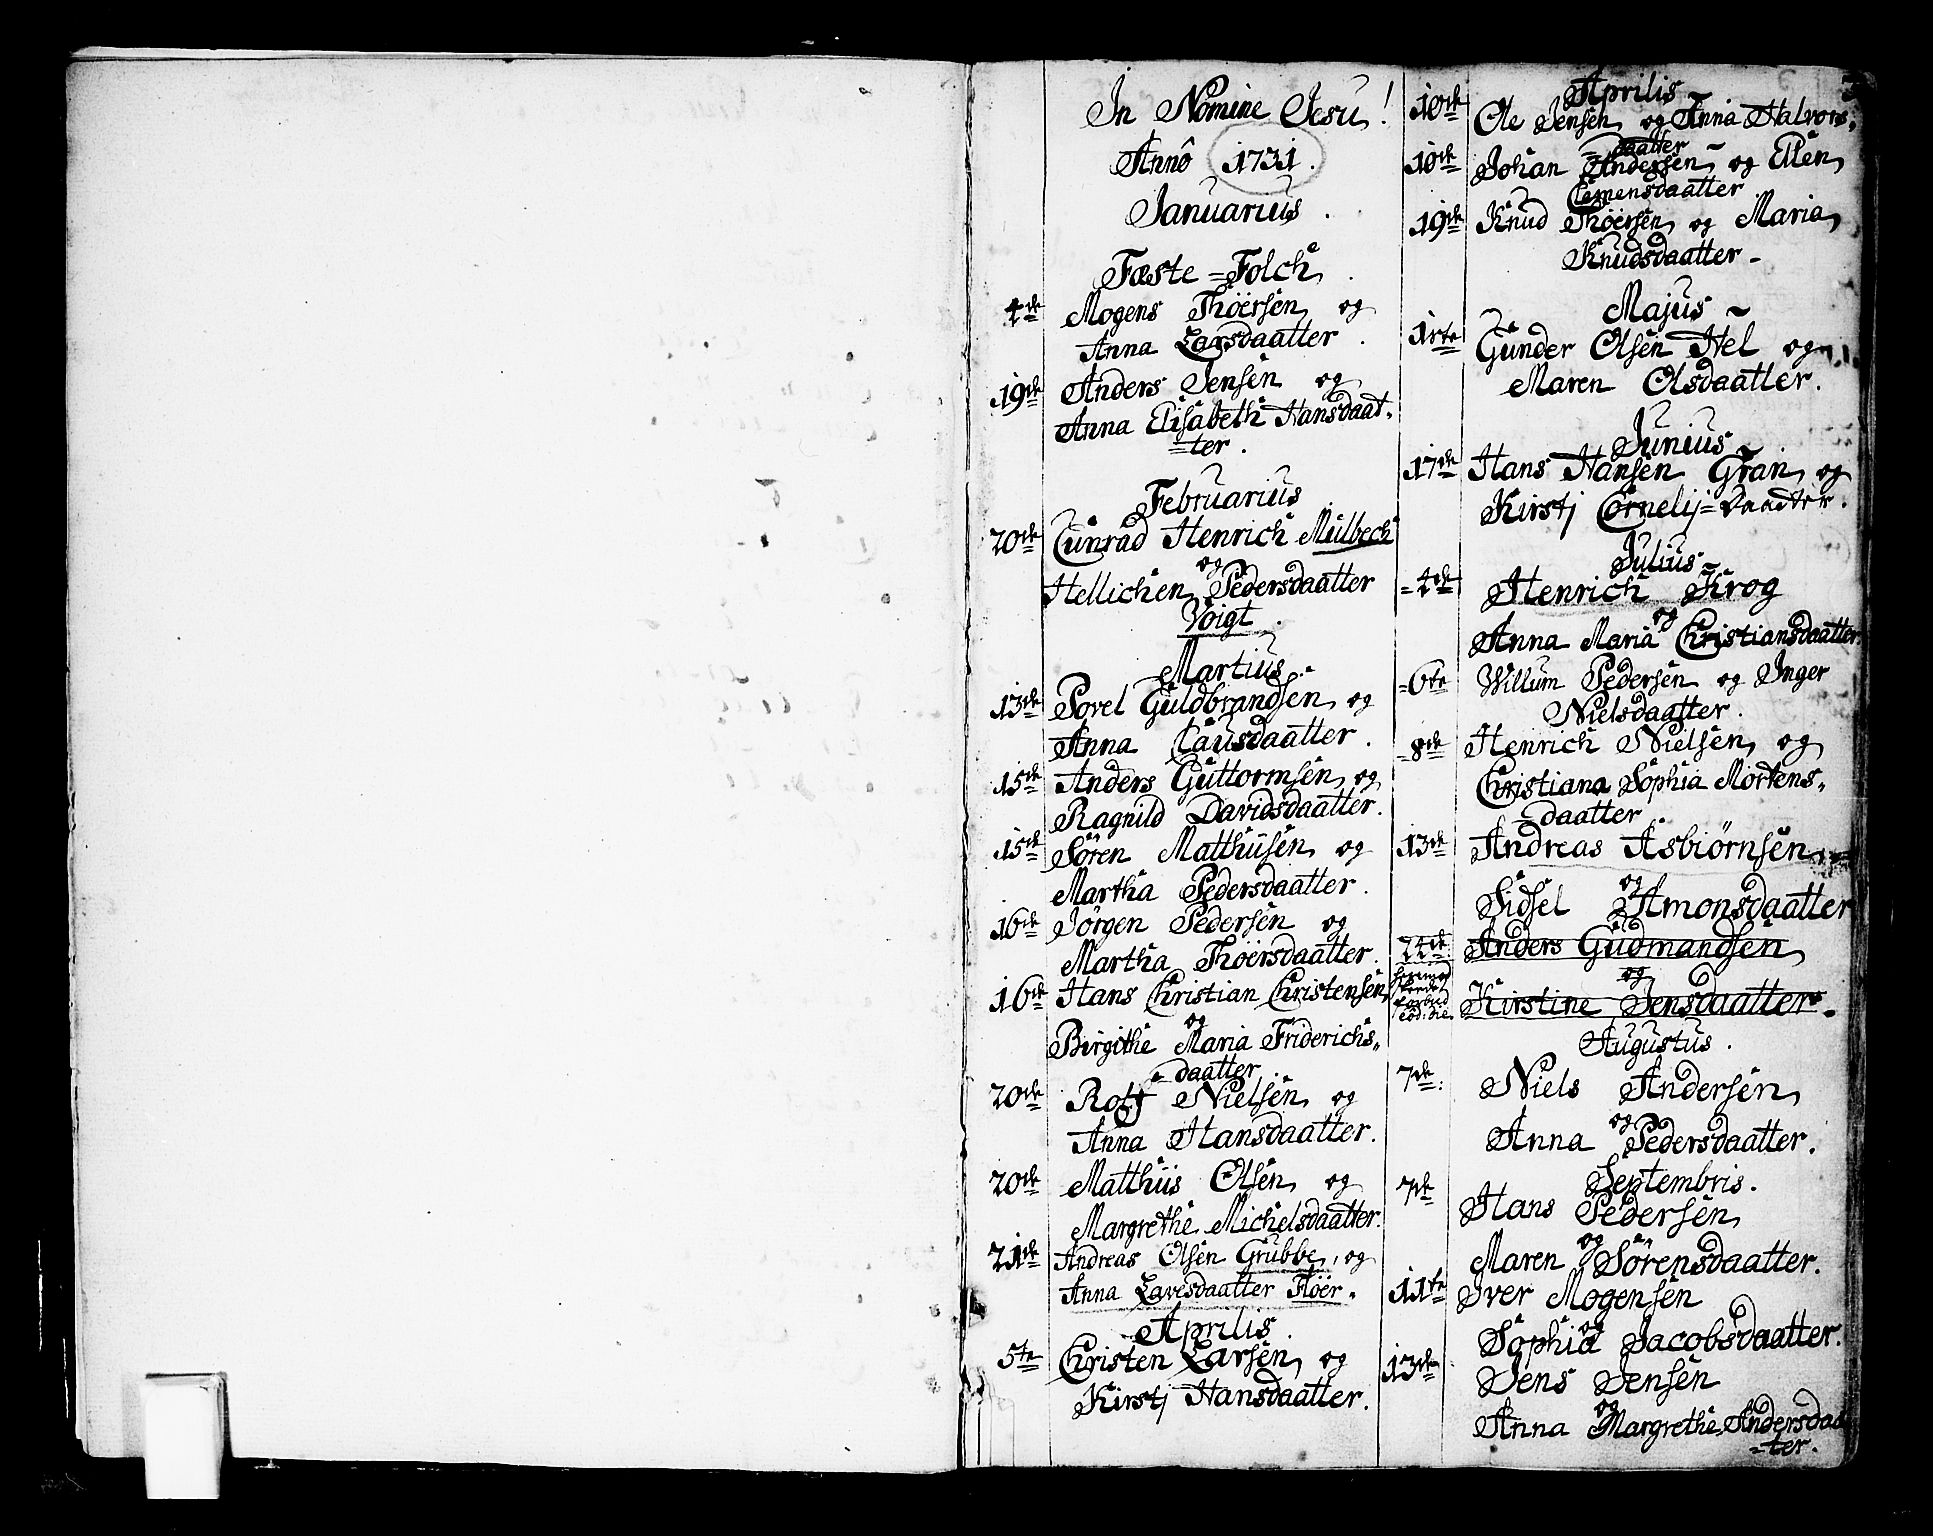 In Nomine Jesu!
Annô 1731.
Januarius.
Fæste=Folch.
4de Mogens Thöersen og
Anna Larsdaatter.
19de Anders Jensen og
Anna Elisabeth Hansdaat=
=ter.
Februarius
20de Cunrad Henrich Mülbech
og
Hellichen Pedersdaatter
Voigt.
Martius.
13de Povel Guldbrandsen og
Anna Clausdaatter.
15de Anders Guttormsen og
Ragnild Davidsdaatter.
15de Sören Matthiisen og
Martha Pedersdaatter.
16de Jörgen Pedersen og
Martha Thöersdaatter.
16de Hans Christian Christensen
og
Birgithe Maria Friderichs=
=daatter
20de Rolf Nielsen og
Anna Hansdaatter.
20de Matthiis Olsen og
Margrethe Michelsdaatter.
21de Andreas Olsen Grubbe, og
Anna Lavesdaatter Flöer.
Aprilis.
5te Christen Larsen og
Kirstj Hansdaatter.
Aprilis
10de Ole Jensen og Anna Halvors=
=daatter
10de Johan Andersen og Ellen
Clemensdaatter
19de Knud Thöersen og Maria
Knudsdaatter
Majus
11te Gunder Olsen Hel og
Maren Olsdaatter.
Junius
17de Hans Hansen Gran og
Kirstj Cornelij=daadter.
Julius
4de Henrich Krog
og
Anna Maria Christiansdaatter
6te Willum Pedersen og Inger
Nielsdaatter.
8de Henrich Nielsen og
Christiana Sophia Mortens=
=daatter
13de Andreas Asbiörnsen
og
Sidsel Amonsdaatter
24de Anders Gudmandsen
og
Kirstine Jensdaatter.
Augustus.
7de: Niels Andersen
og
Anna Pedersdaatter.
Septembris.
7de Hans Pedersen
og
Maren Sörensdaatter.
11te Iver Mogensen
og
Sophia Jacobsdaatter.
13de Jens Jensen
og
Anna Margrethe Andersdaa
=ter.